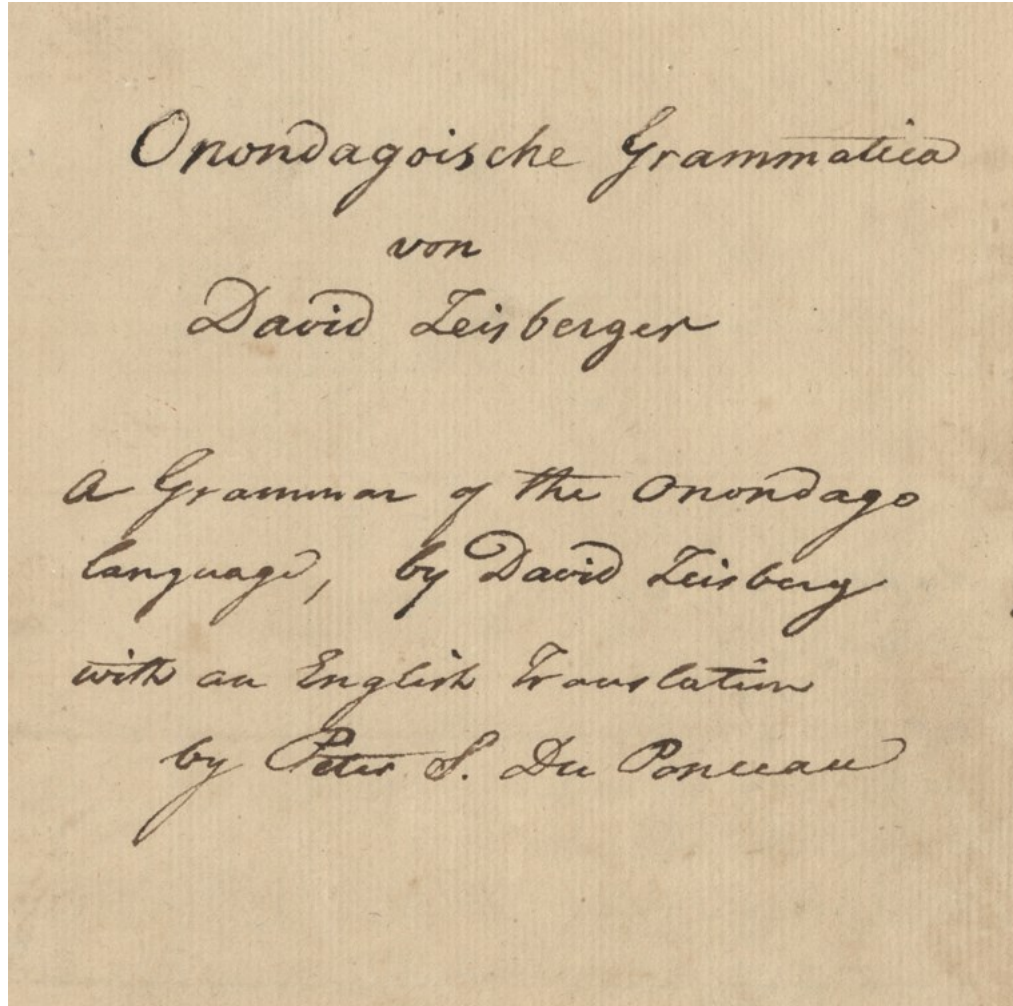 Onondagoische Grammatica
von
David Zeisberger
A Grammar of the Onondago
language, by David Zeisberg
with an English Translation
by Peter S. Du Ponceau